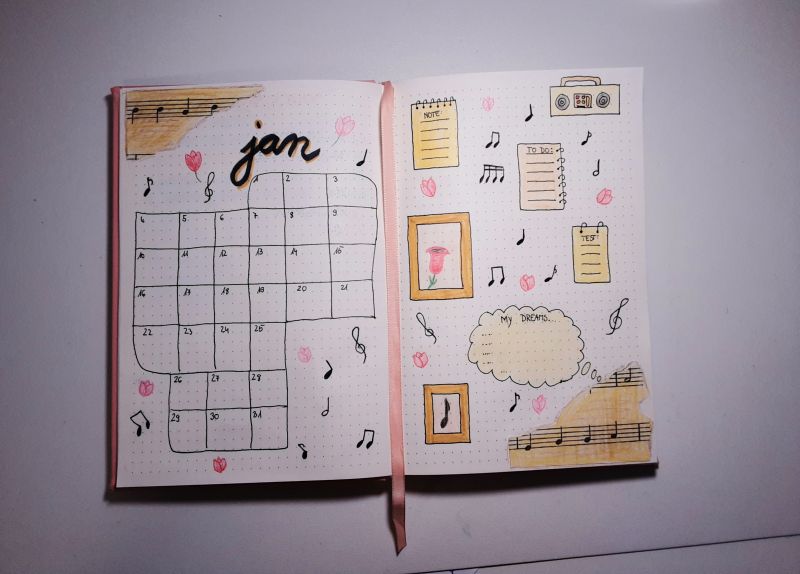 jan
1 2 3
4 5 6 7 8 9
10 11 12 13 14 15
16 17 18 19 20 21
22 23 24 25
26 27 28
29 30 31
NOTE:
TO DO:
TEST:
My DREAMS...